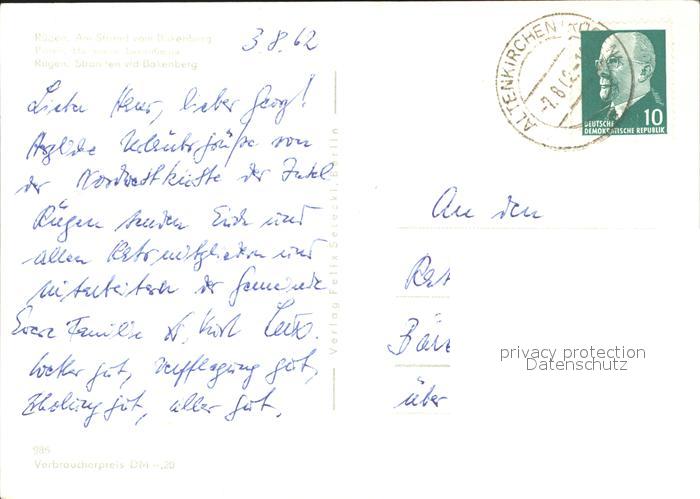 Rügen. Am Strand vom Bakenberg
Rügen. Strandleben v/d Bakenberg
3.8.62
Lieber Hans, lieber Georg!
Herzliche Urlaubsgrüße von
der Nordwestküste der Insel
Rügen senden Euch und
allen Ratsmitgliedern und
Mitarbeitern der Gemeinde
Eure Familie Dr. Kurt
Wetter gut, Verpflegung gut,
Erholung gut, alles gut.
985
Verbraucherpreis DM -,20
Verlag Felix Setecki, Berlin
ALTENKIRCHEN (RÜGEN)
-7.8.62
10
DEUTSCHE
DEMOKRATISCHE REPUBLIK
An den
Rat
Bär
über
privacy protection
Datenschutz